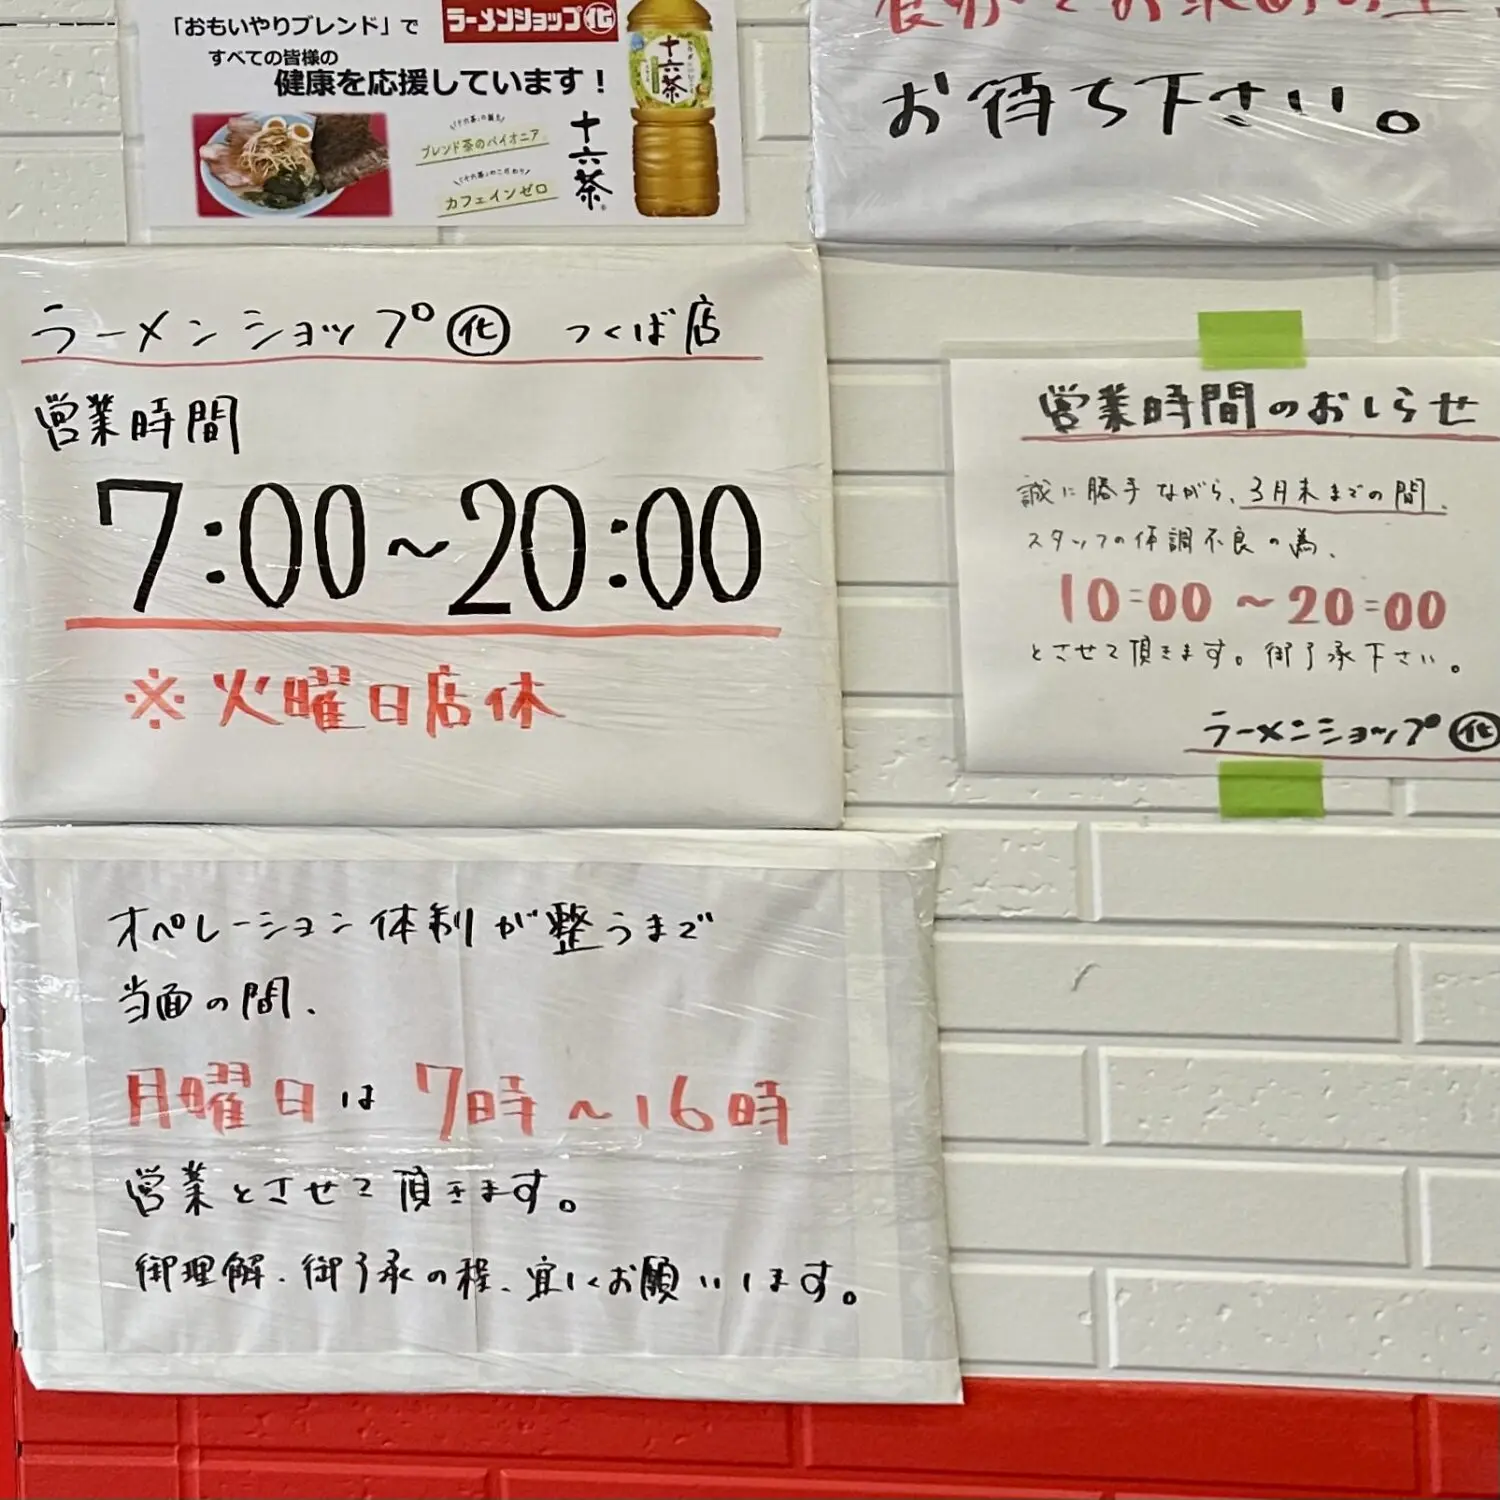 「おもいやりブレンド」で
すべての皆様の
健康を応援しています！
ラーメンショップ㊗
ブレンド茶のパイオニア
カフェインゼロ
十六茶
十六茶
お待ち下さい。
ラーメンショップ 化 つくば店
営業時間
7:00～20:00
※火曜日店休
営業時間のおしらせ
誠に勝手ながら、3月末までの間、
スタッフの体調不良の為、
10:00～20:00
とさせて頂きます。御了承下さい。
ラーメンショップ 化
オペレーション体制が整うまで
当面の間、
月曜日は7時～16時
営業とさせて頂きます。
御理解、御了承の程、宜しくお願いします。